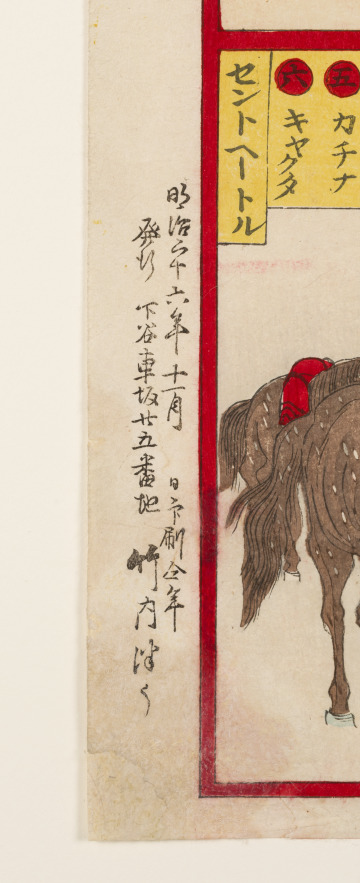 五 カチナ
六 キャクタ
セントヘートル
明治二十六年十一月 日印刷仝年
発行 下谷車坂廿五番地 竹内